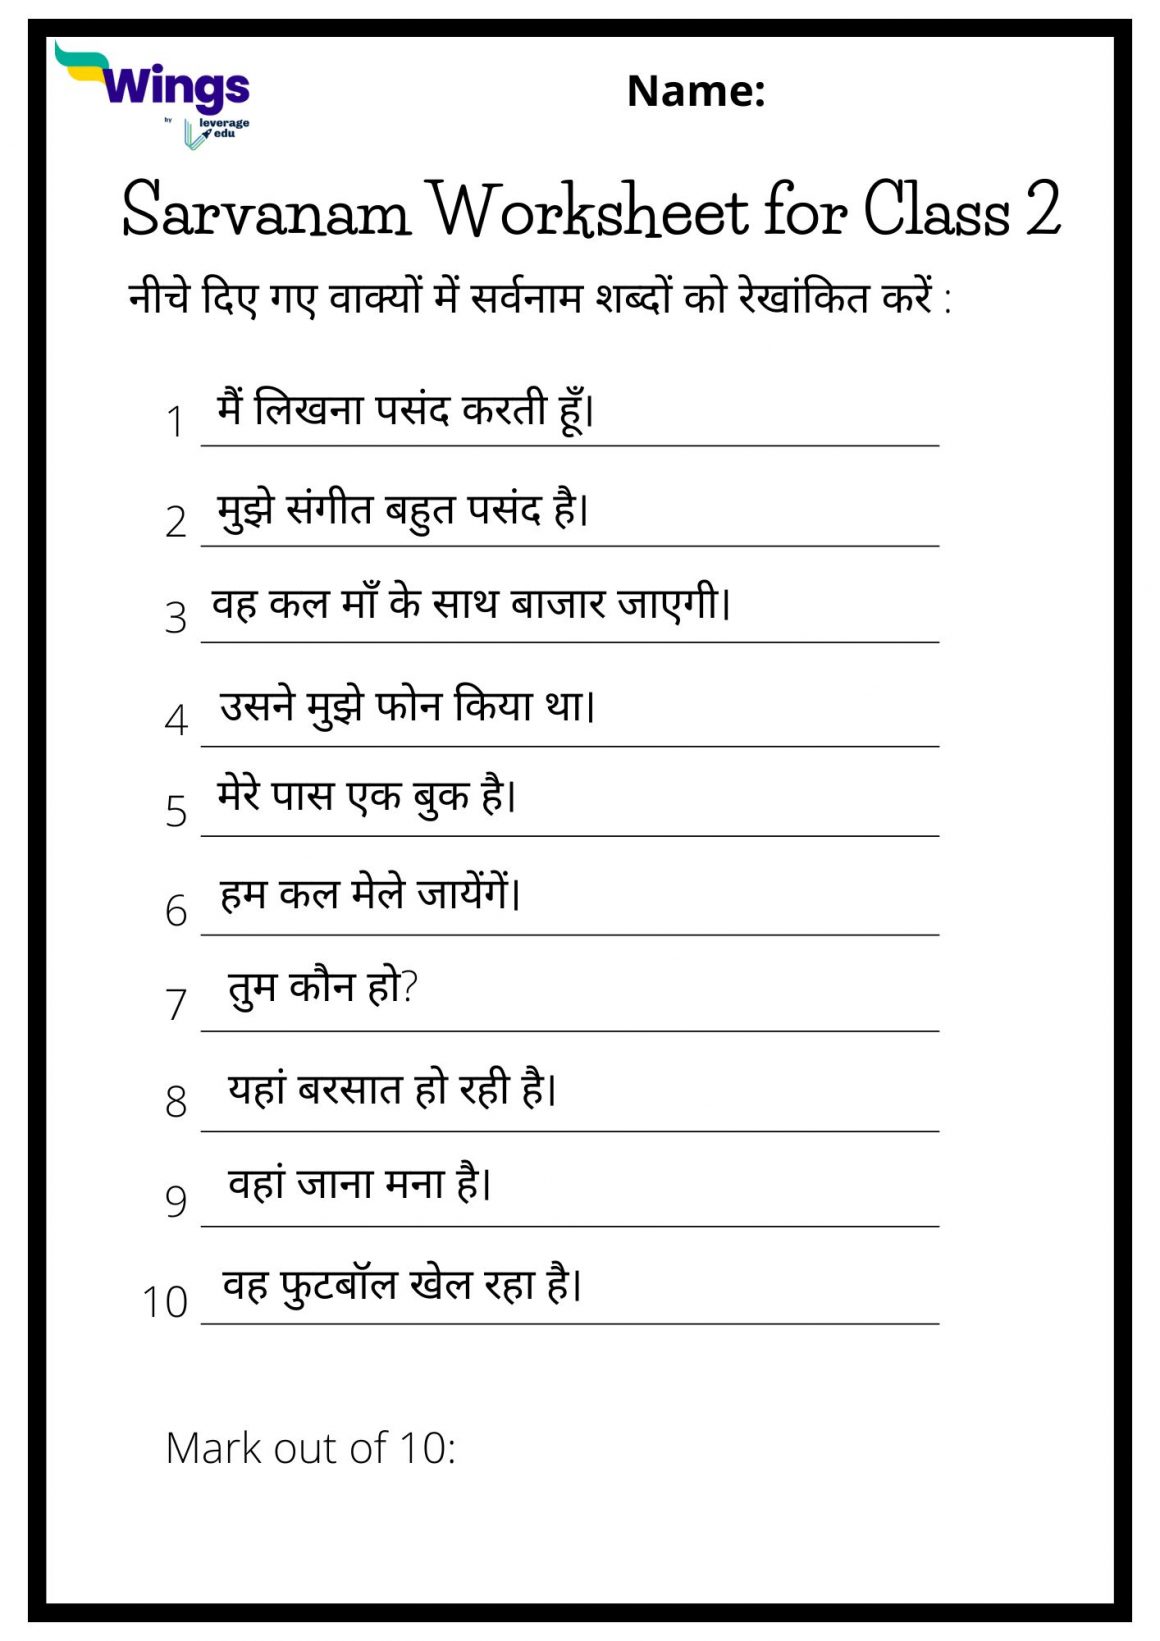 Wings
by leverage edu
Name:
Sarvanam Worksheet for Class 2
नीचे दिए गए वाक्यों में सर्वनाम शब्दों को रेखांकित करें :
1 मैं लिखना पसंद करती हूँ।
2 मुझे संगीत बहुत पसंद है।
3 वह कल माँ के साथ बाजार जाएगी।
4 उसने मुझे फोन किया था।
5 मेरे पास एक बुक है।
6 हम कल मेले जायेंगें।
7 तुम कौन हो?
8 यहां बरसात हो रही है।
9 वहां जाना मना है।
10 वह फुटबॉल खेल रहा है।
Mark out of 10: